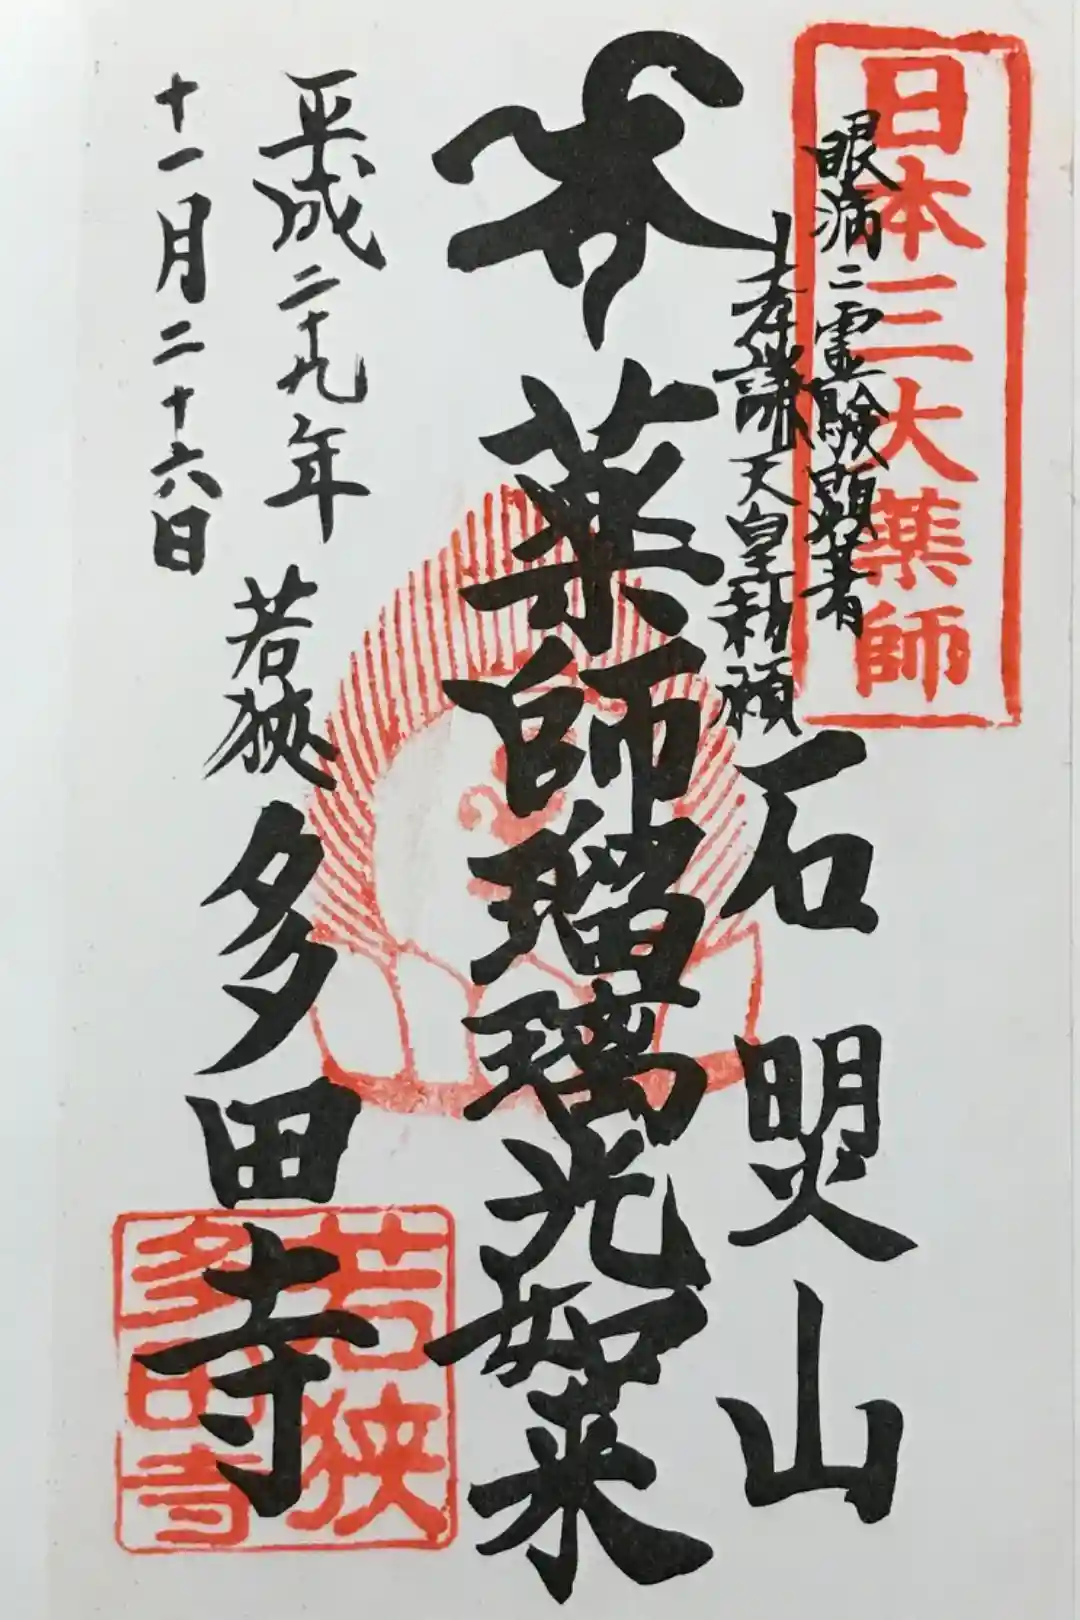 日本三大薬師
眼病ニ霊験顕著
孝謙天皇勅願
石 照 山
薬師瑠璃光如来
若狭 多田寺
平成二十九年
十一月二十六日
若狭
多田寺